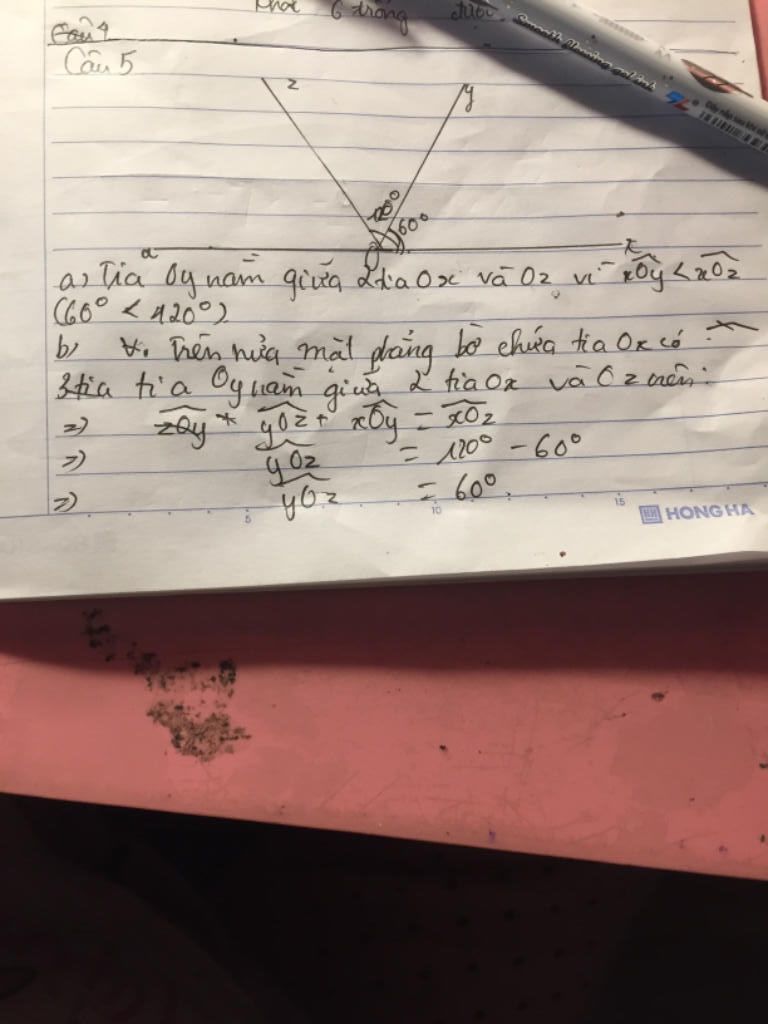 6 trong được.
Câu 4
Câu 5
z
y
120°
60°
a
O
x
a) Tia Oy nằm giữa 2 tia Ox và Oz vì xOy < xOz
(60° < 120°)
b) Trên nửa mặt phẳng bờ chứa tia Ox có
3 tia tia Oy nằm giữa 2 tia Ox và Oz nên:
=> zOy + yOz + xOy = xOz
=> yOz = 120° - 60°
=> yOz = 60°.
5 10 15
HH HONG HA
SL